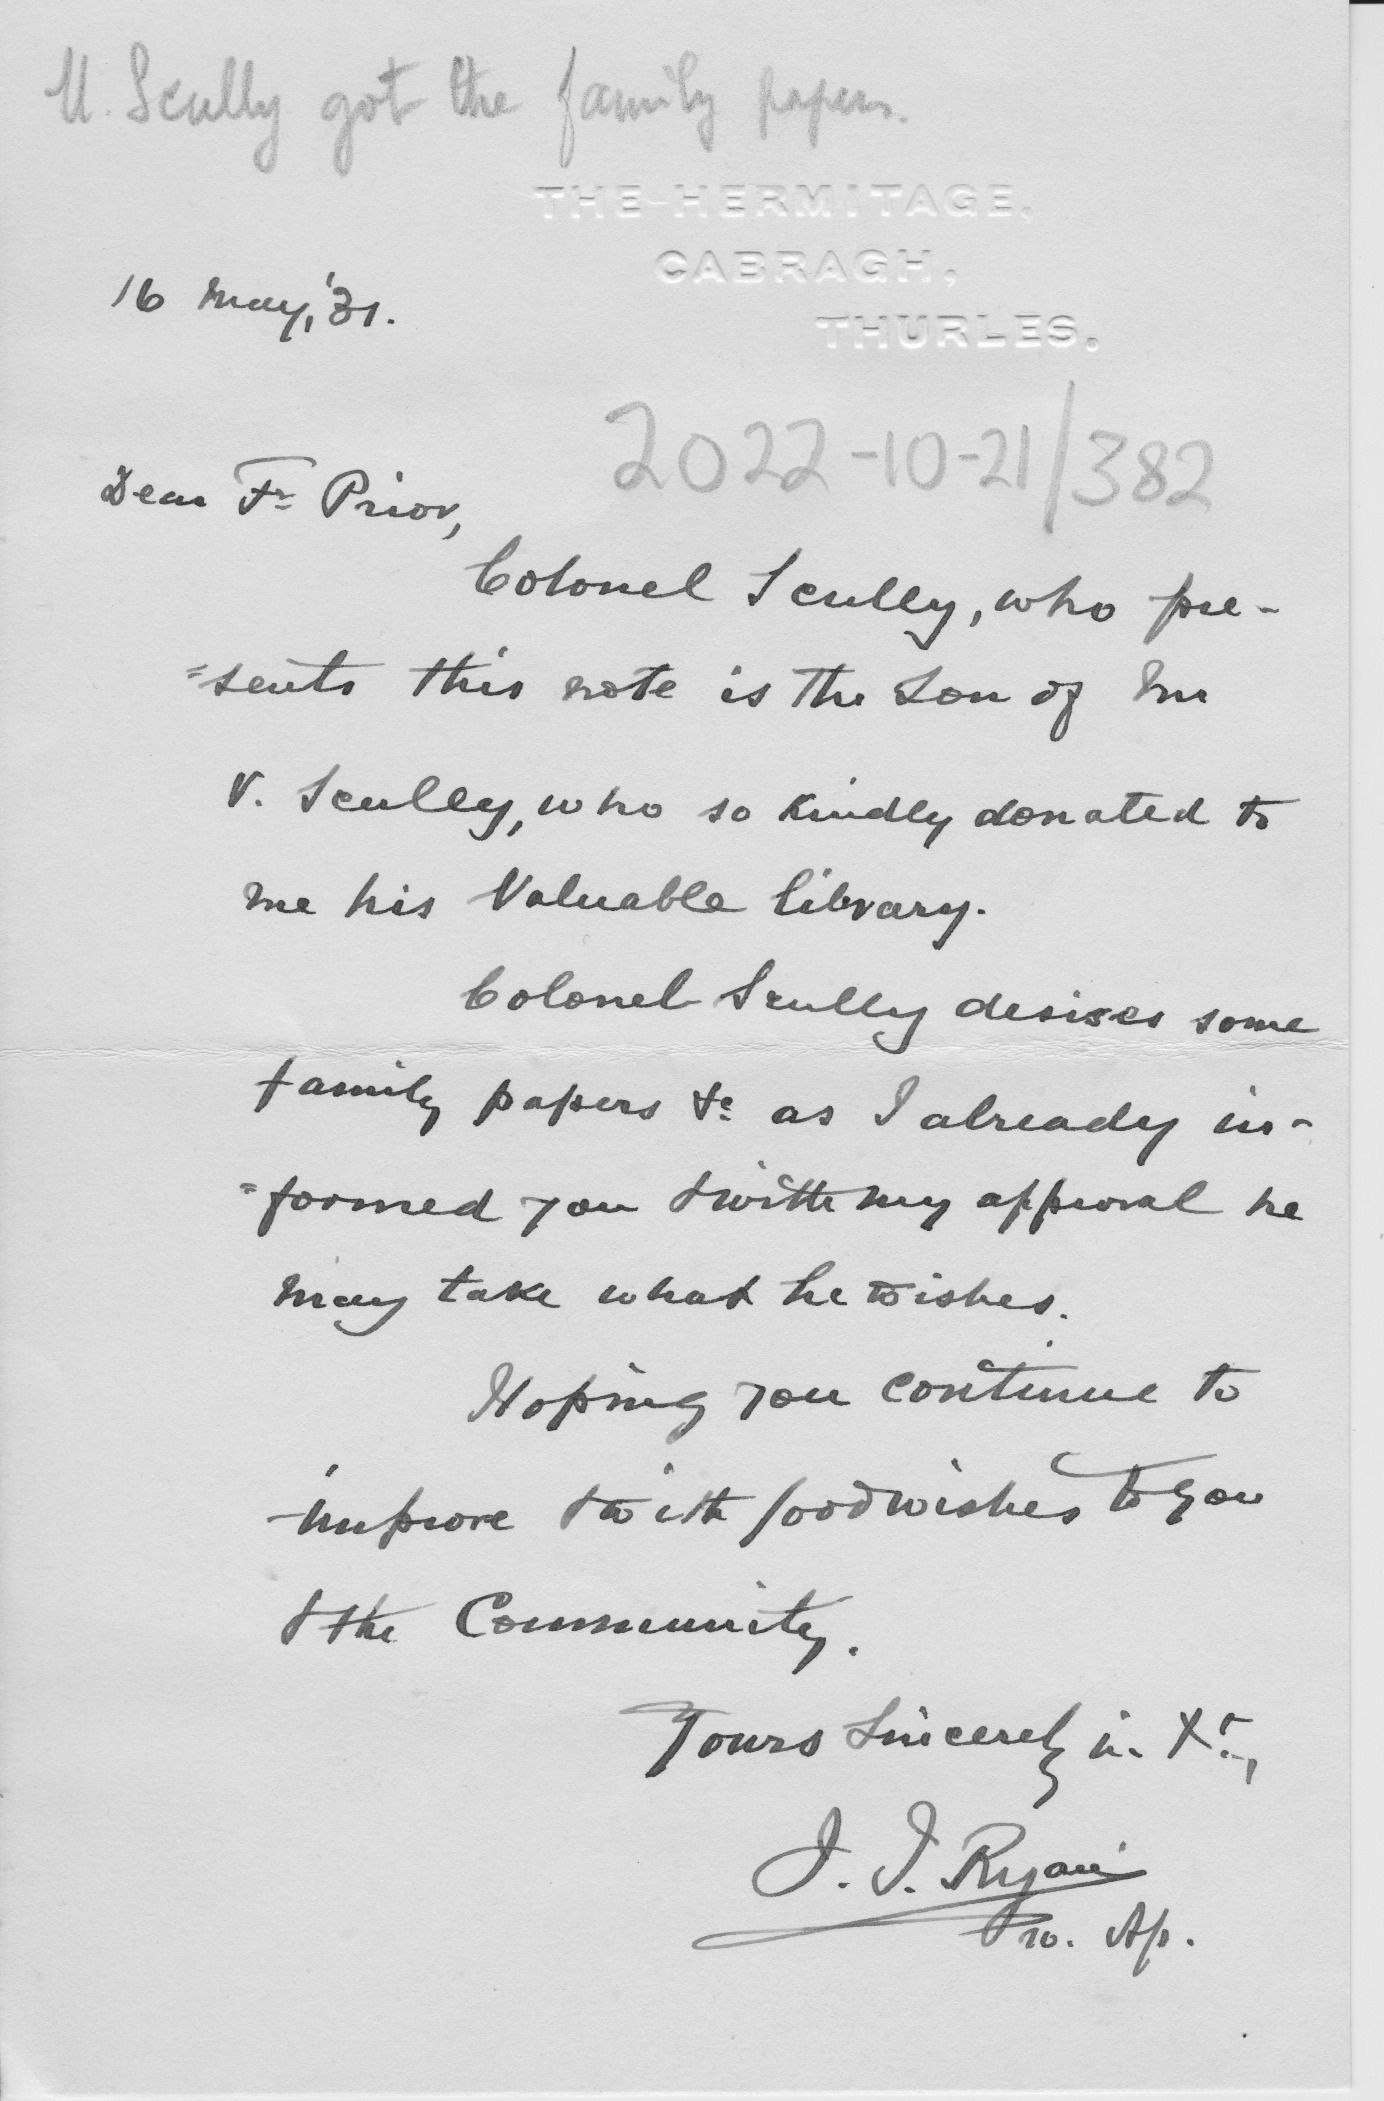 U. Scully got the family papers.
THE HERMITAGE,
CABRAGH,
THURLES.
16 May, '31.
2022-10-21/382
Dear Fr Prior,
Colonel Scully, who pre-
=sents this note is the son of Mr
V. Scully, who so kindly donated to
me his valuable library.
Colonel Scully desires some
family papers &c as I already in-
=formed you & with my approval he
may take what he wishes.
Hoping you continue to
improve & with good wishes to you
& the Community.
Yours sincerely in Xt,
J. J. Ryan
Pro. Ap.